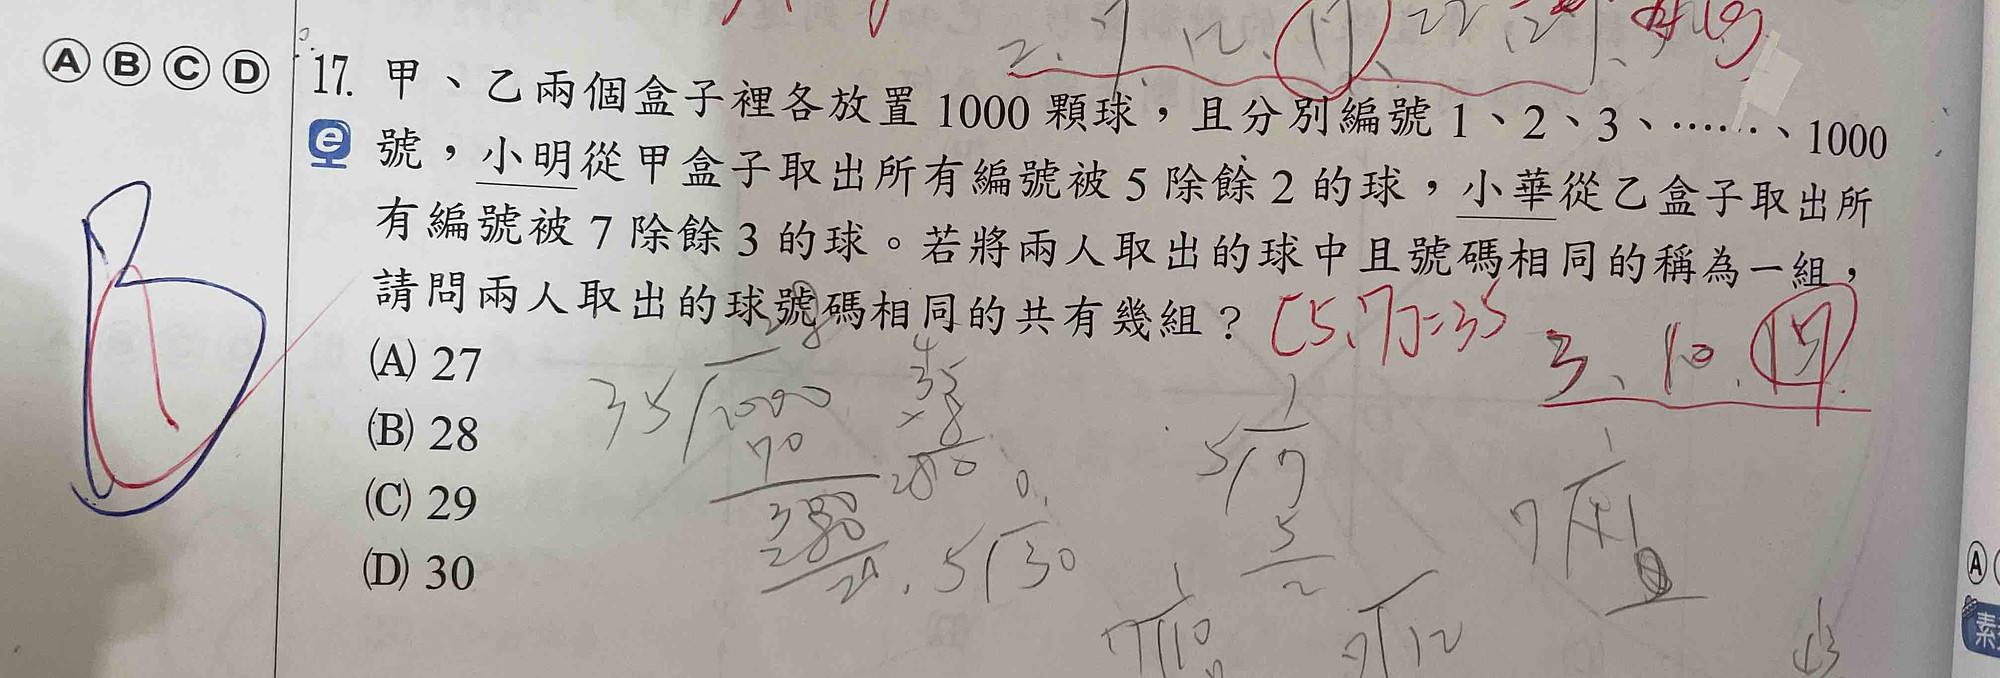 2、7、12、17、22、27、
Ⓐ Ⓑ Ⓒ Ⓓ
17. 甲、乙兩個盒子裡各放置 1000 顆球，且分別編號 1、2、3、……、1000
號，小明從甲盒子取出所有編號被 5 除餘 2 的球，小華從乙盒子取出所
有編號被 7 除餘 3 的球。若將兩人取出的球中且號碼相同的稱為一組，
請問兩人取出的球號碼相同的共有幾組？
[5,7]=35
3、10、17
(A) 27
(B) 28
(C) 29
(D) 30
B
28
35 1000
70
300
280
20
35
×8
280
5 30
1
5 7
5
2
7 10
7 12
Ⓐ
素